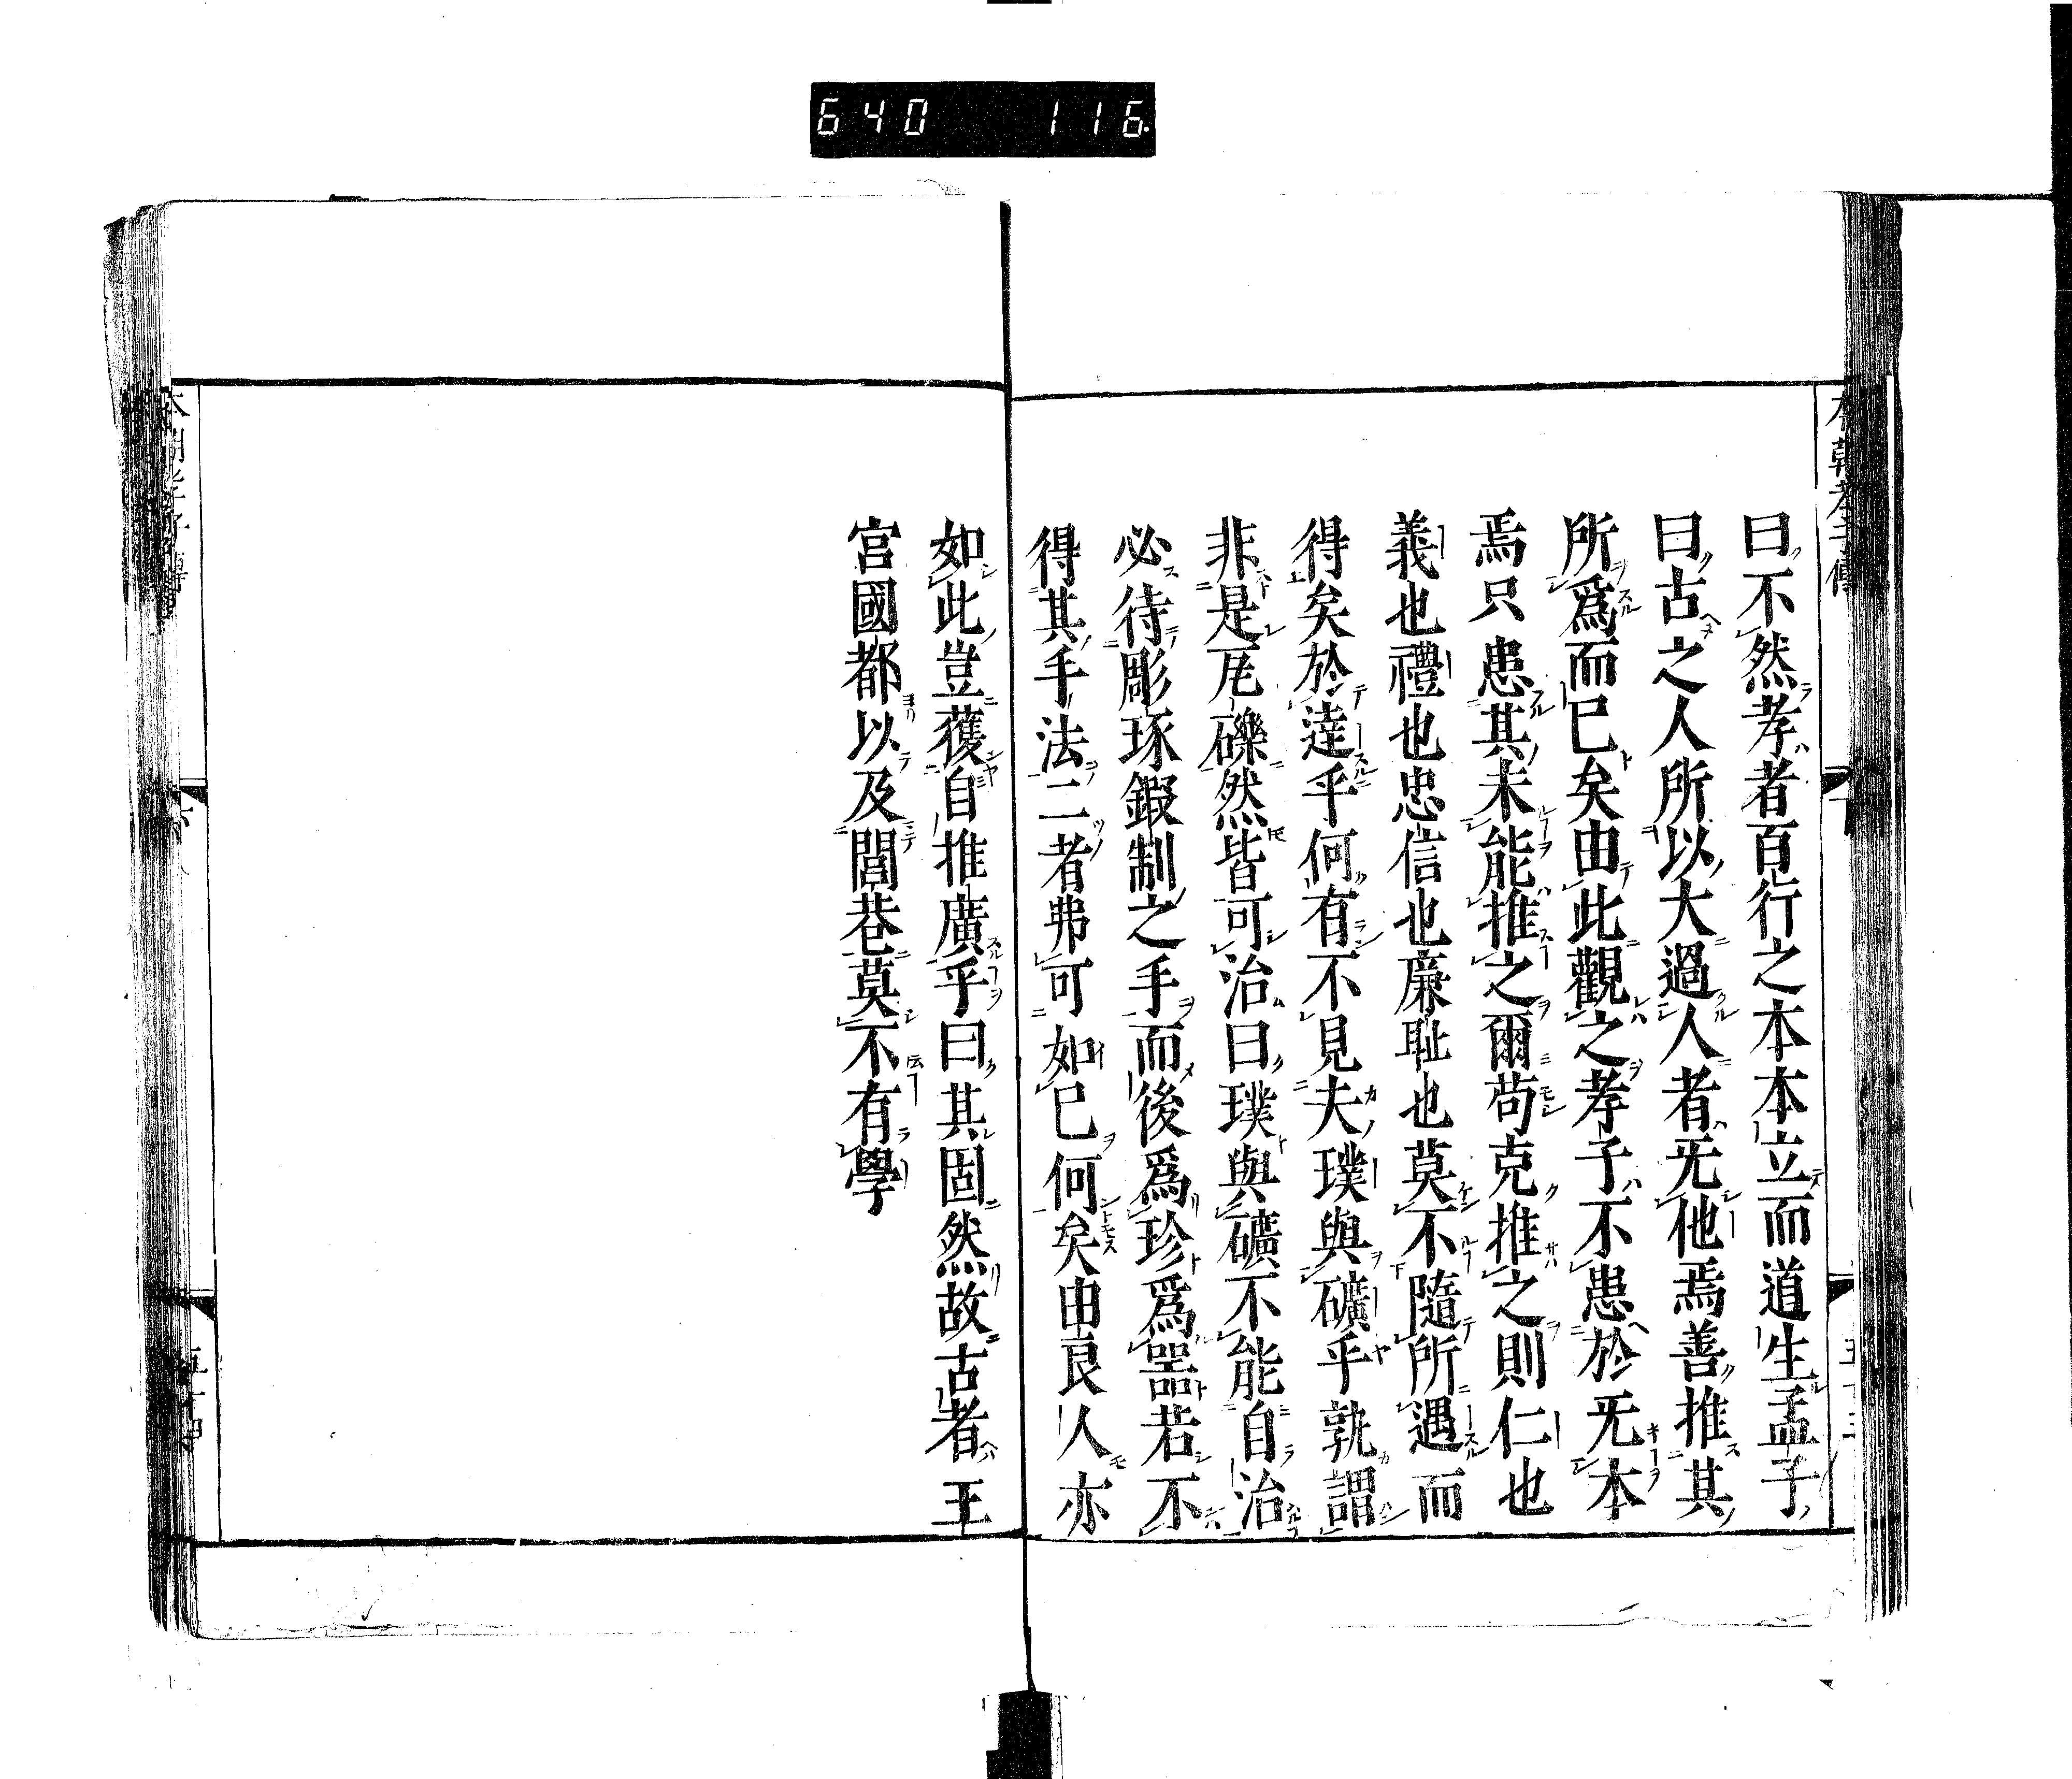 640 116
曰不然孝者百行之本本立而道生孟子
曰古之人所以大過人者旡他焉善推其
所爲而已矣由此觀之孝子不患於旡本
焉只患其未能推之爾苟克推之則仁也
義也禮也忠信也廉耻也莫不隨所遇而
得矣於達乎何有不見夫璞與礦乎孰謂
非是瓦礫然皆可治曰璞與礦不能自治
必待彫琢鍜制之手而後爲珍爲噐若不
得其手法二者弗可如已何矣由良人亦
如此豈獲自推廣乎曰其固然故古者王
宮國都以及閭巷莫不有學